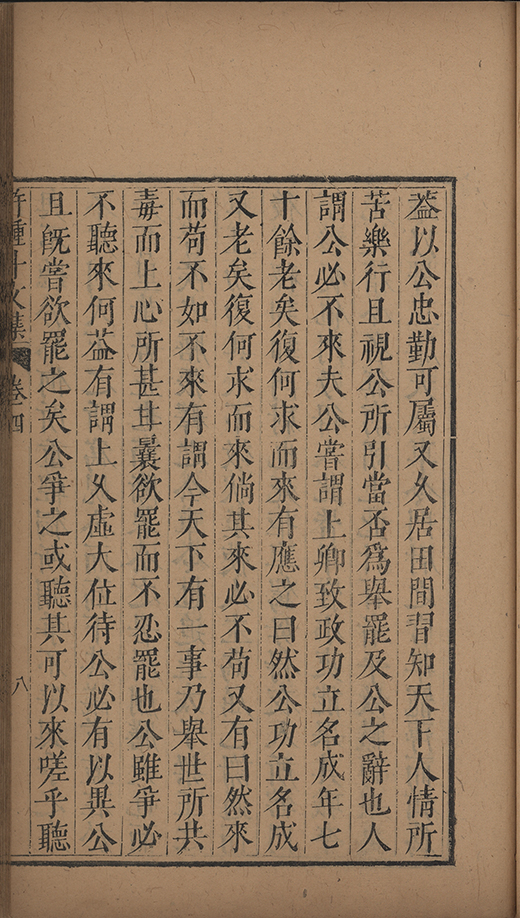 葢以公忠勤可屬又久居田間習知天下人情所
苦樂行且視公所引當否爲舉罷及公之辭也人
謂公必不來夫公嘗謂上卿致政功立名成年七
十餘老矣復何求而來有應之曰然公功立名成
又老矣復何求而來倘其來必不苟又有曰然來
而苟不如不來有謂今天下有一事乃舉世所共
毒而上心所甚甘曩欲罷而不忍罷也公雖爭必
不聽來何葢有謂上久虛大位待公必有以異公
且旣嘗欲罷之矣公爭之或聽其可以來嗟乎聽
許鍾斗文集 卷之四 八